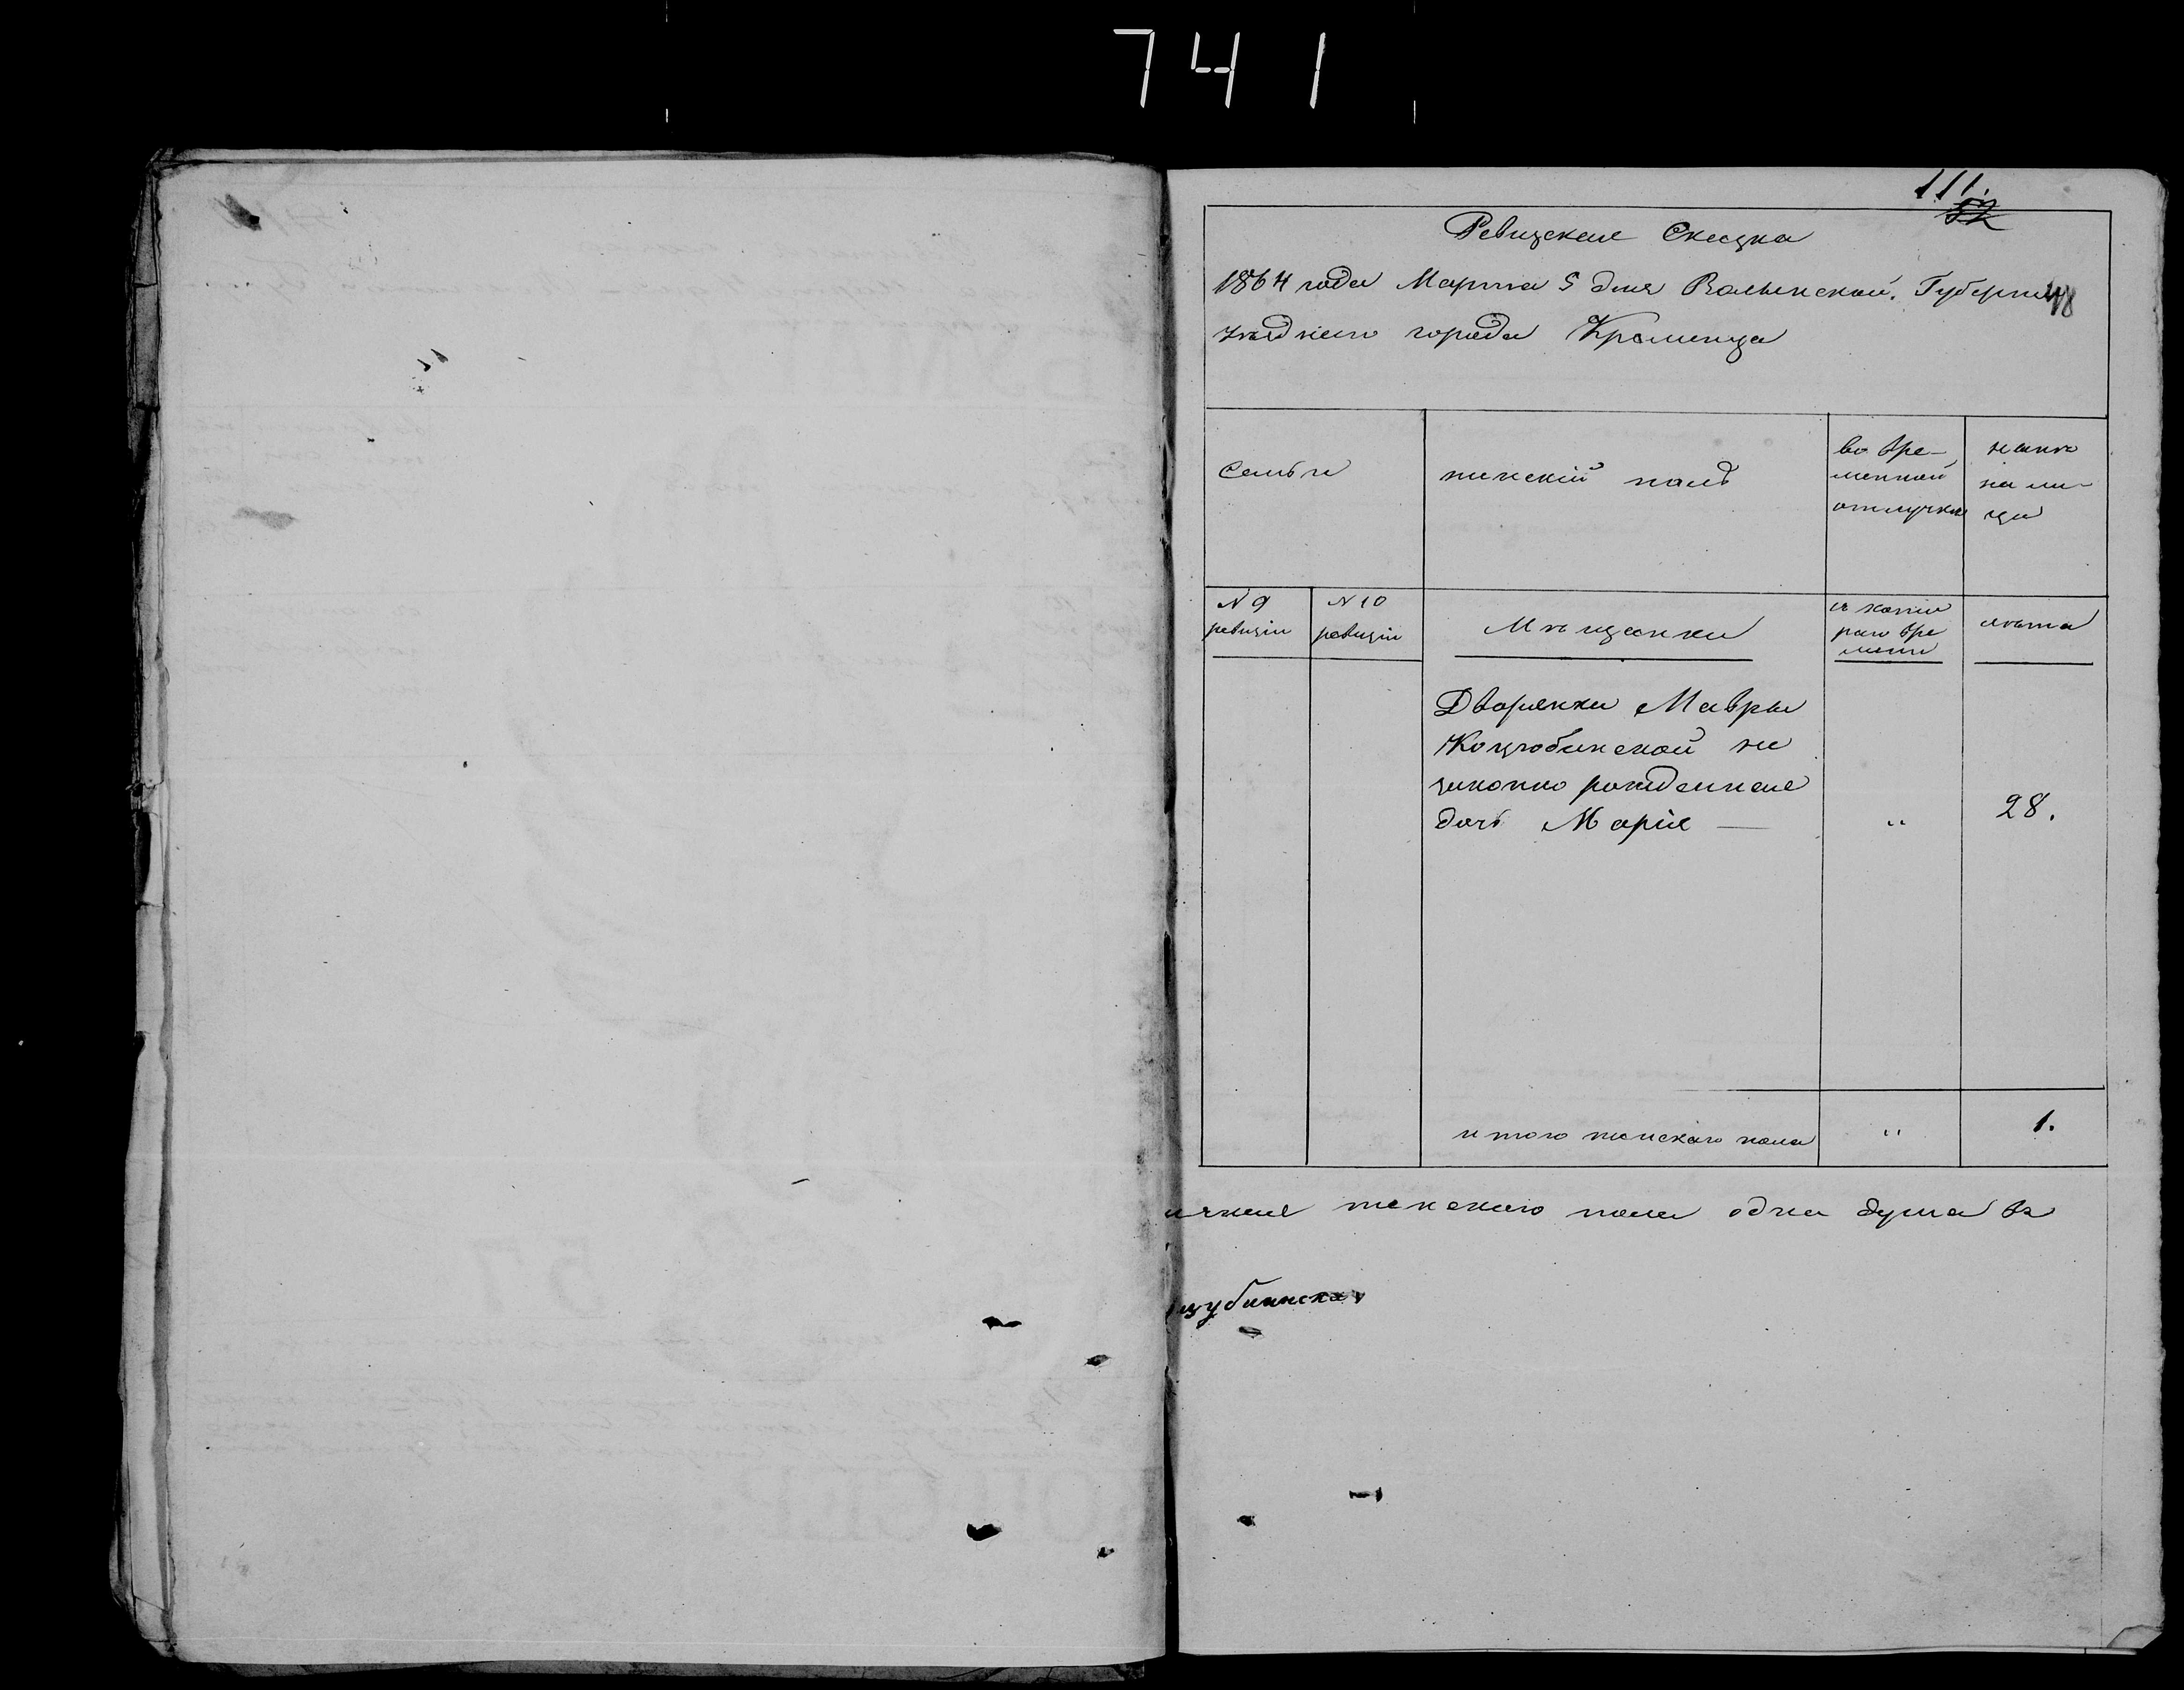 741
111.
52
Ревизская Сказка
1864 года Марта 5 дня Волынской Губерніи
48
уѣзднаго города Кременца
Семьи
женскій полъ
во вре-
менной
отлучкѣ
нынѣ
на ли-
цо
N 9
ревизіи
N 10
ревизіи
Мѣщанки
съ кото
раго вре
мени
лѣта
Дворянки Мавры
Коцюбинской не
законно рожденная
дочь Марія — " 28.
итого женскаго пола " 1.
женскаго пола одна душа въ
цубинска